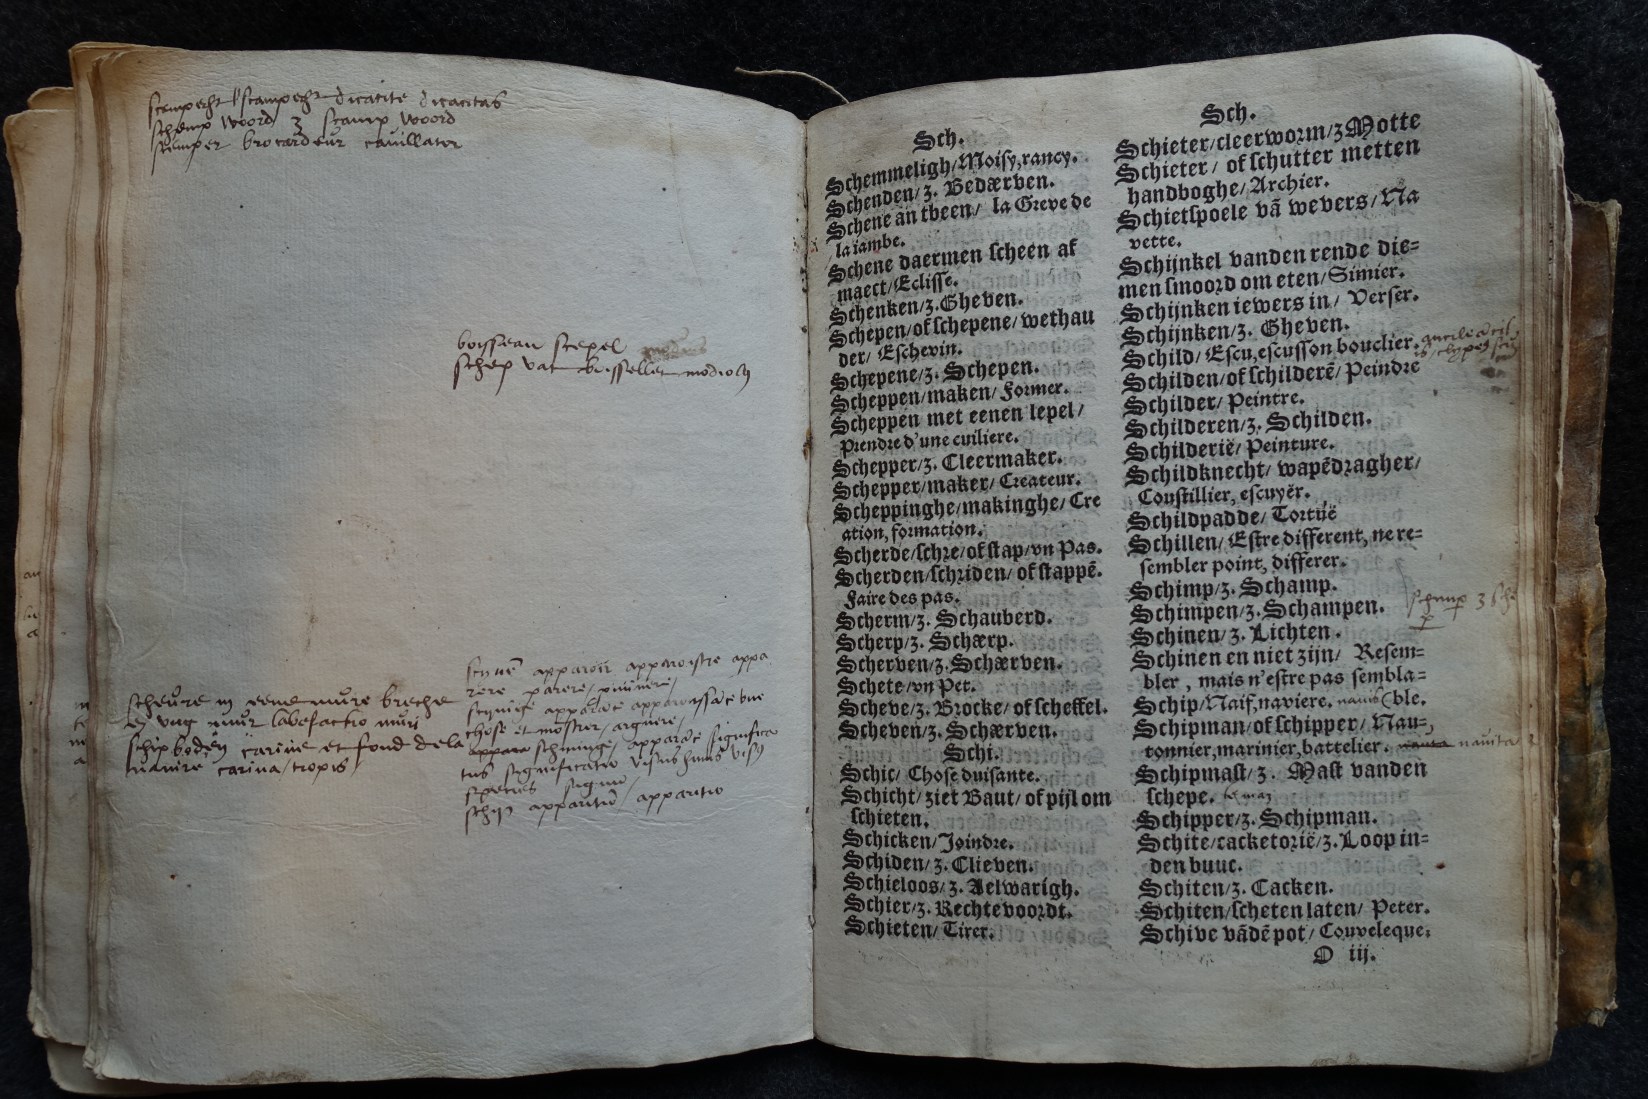 dicacite dicacitas
woord z scamp woord
brocardeur cauillator
boisseau scepel
schep vat
scheure in eene mure breche
en ung mur labefactio muri
schip boden carine et fond de la
nauire carina/tropis
apparoir apparoistre appa
rere parere/
chose et monstrer/arguere/
tus significatio visus
species signum
schijn apparitio/apparitio
Sch.
Schemmeligh/Moisy,rancy.
Schenden/z. Bedærven.
Schene an tbeen/ la Greve de
la iambe.
Schene daermen scheen af
maect/Eclisse.
Schenken/z.Gheven.
Schepen/of schepene/wethau
der/ Eschevin.
Schepene/z. Schepen.
Scheppen/maken/Former.
Scheppen met eenen lepel/
Prendre d'une cuiliere.
Schepper/z. Cleermaker.
Schepper/maker/Createur.
Scheppinghe/makinghe/Cre
ation,formation.
Scherde/schre/of stap/vn Pas.
Scherden/schriden/ of stappē.
Faire des pas.
Scherm/z. Schauberd.
Scherp/z. Schærp.
Scherven/z.Schærven.
Schete/vn Pet.
Scheve/z.Brocke/ of scheffel.
Scheven/z. Schærven.
Schi.
Schic/ Chose duisante.
Schicht/ziet Baut/of pijl om
schieten.
Schicken/Joindre.
Schiden/z.Clieven.
Schieloos/z.Aelwarigh.
Schier/z.Rechtevoordt.
Schieten/Tirer.
Sch.
Schieter/cleerworm/z Motte
Schieter/ of schutter metten
handboghe/Archier.
Schietspoele vā wevers/Na
vette.
Schijnkel vanden rende die=
men smoord om eten/Simier.
Schijnken iewers in/ Verser.
Schijnken/z. Gheven.
Schild/Escu,escusson bouclier.
Schilden/of schilderē/Peindre
Schilder/Peintre.
Schilderen/z. Schilden.
Schilderië/Peinture.
Schildknecht/ wapēdragher/
Coustillier,escuyër.
Schildpadde/Tortuë
Schillen/Estre different,ne re=
sembler point, differer.
Schimp/z. Schamp.
Schimpen/z.Schampen.
Schinen/z.Lichten.
Schinen en niet zijn/ Resem=
bler , mais n'estre pas sembla=
Schip/Naif,naviere. navis (ble.
Schipman/of schipper/Nau=
tonnier,marinier,battelier. nauta nauita
Schipmast/z. Mast vanden
schepe.
Schipper/z.Schipman.
Schite/cacketorië/z.Loop in=
den buuc.
Schiten/z. Cacken.
Schiten/scheten laten/ Peter.
Schive vādē pot/Couveleque.
O iij.